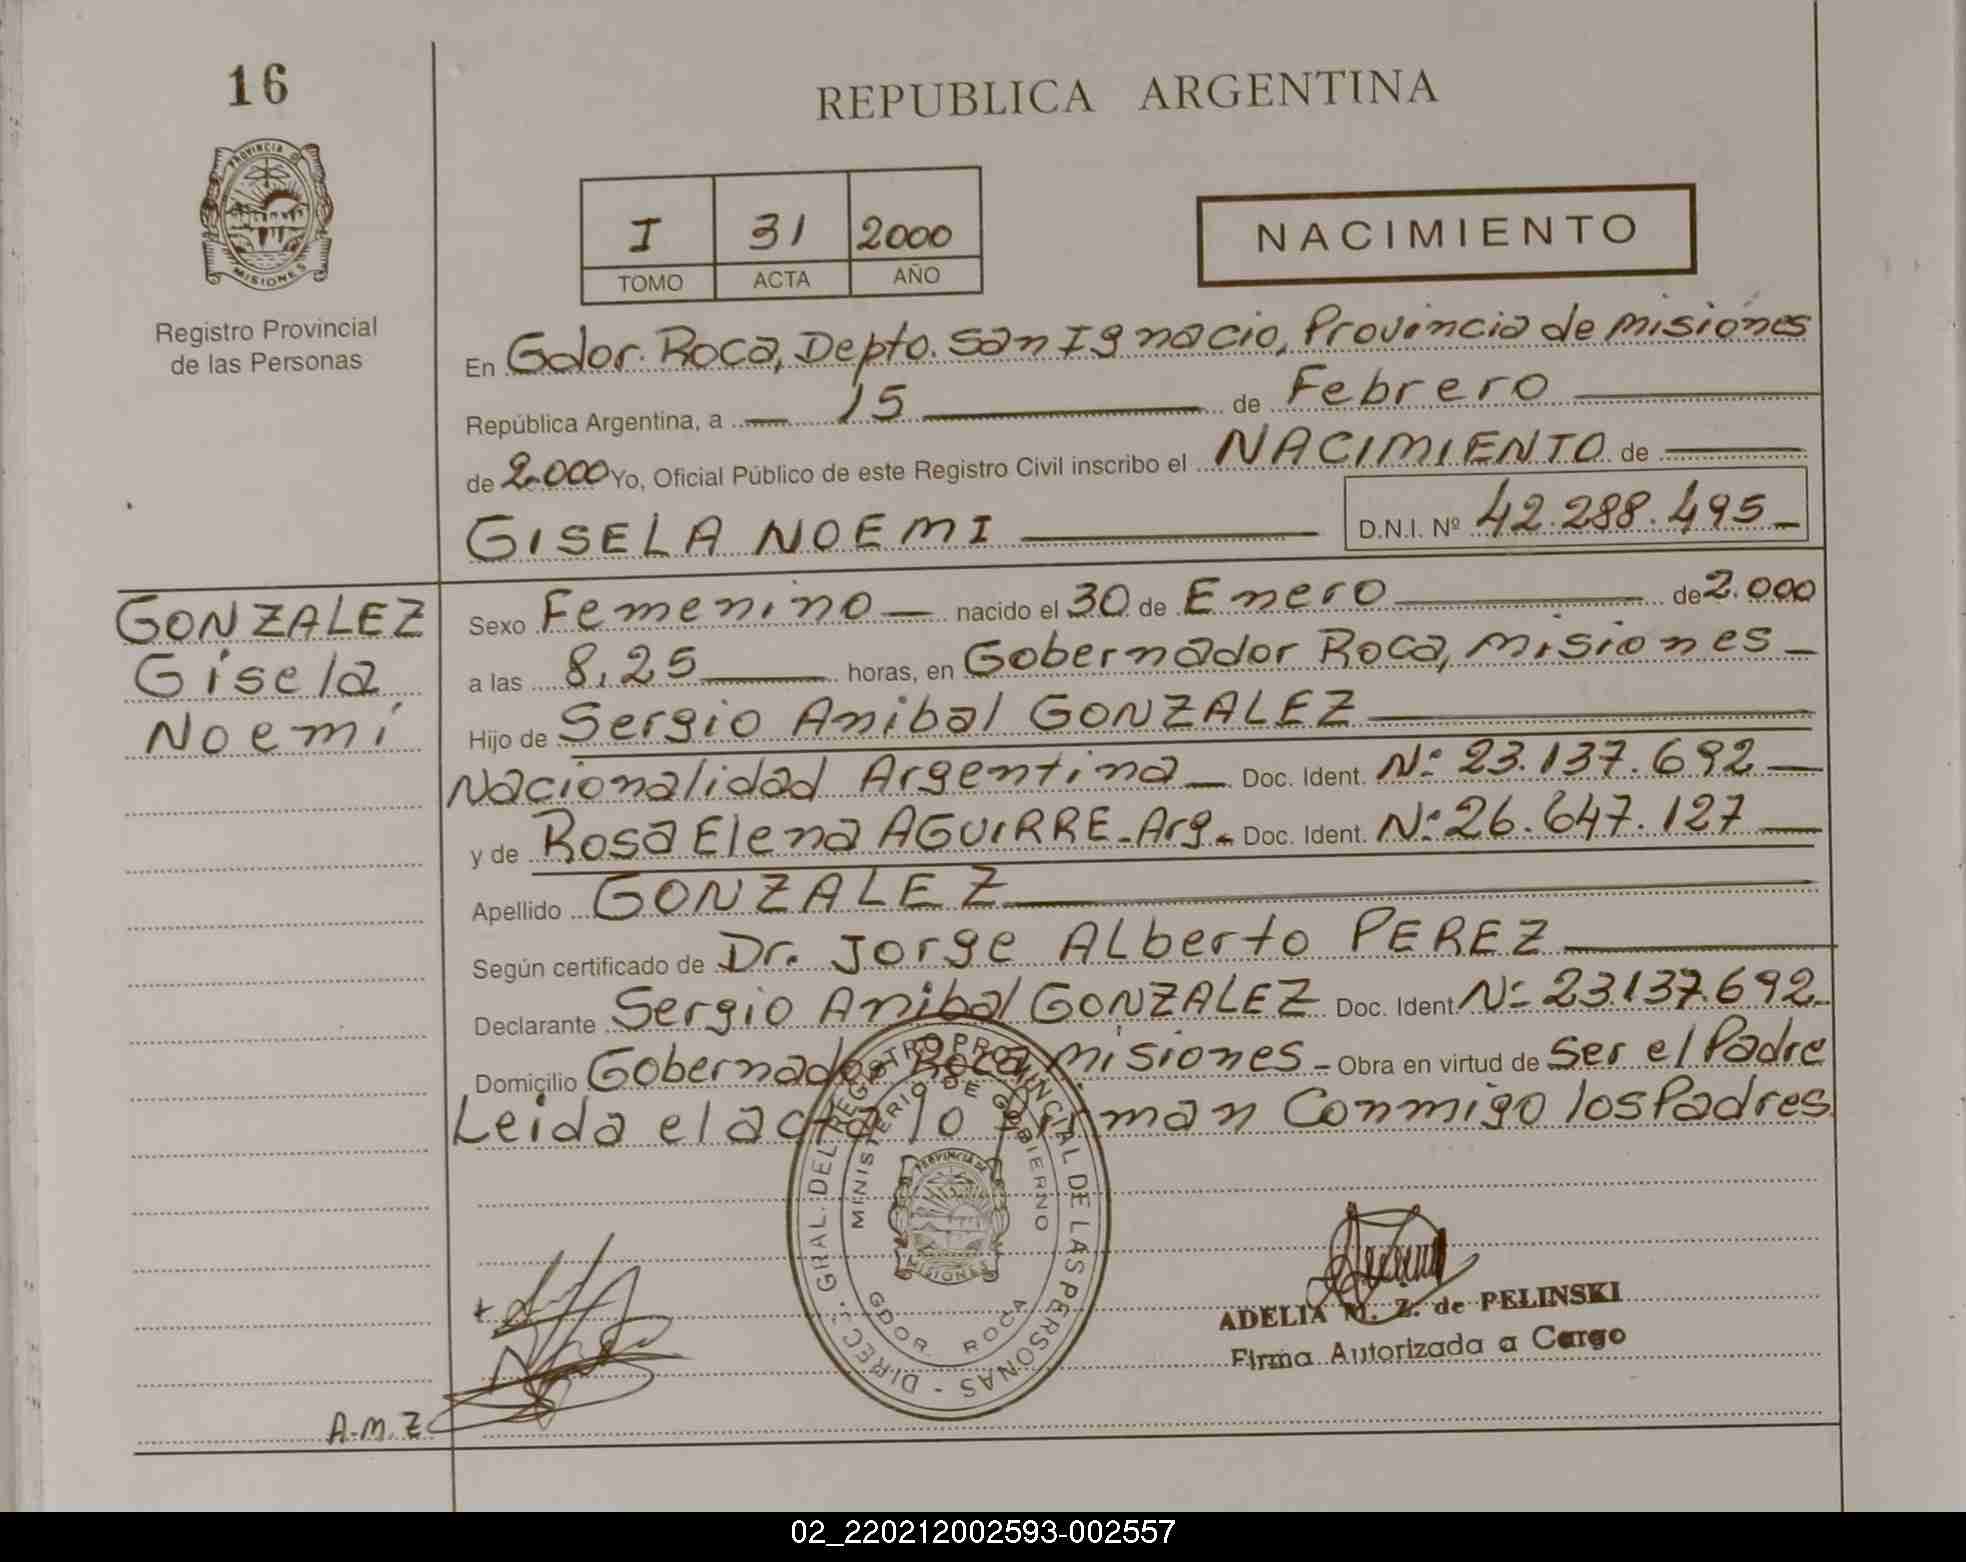 16
REPUBLICA ARGENTINA
PROVINCIA DE
MISIONES
Registro Provincial
de las Personas
I 31 2000
TOMO ACTA AÑO
NACIMIENTO
En Gdor. Roca, Depto. San Ignacio, Provincia de Misiones
República Argentina, a 15 de Febrero
de 2.000 Yo, Oficial Público de este Registro Civil inscribo el NACIMIENTO de
GISELA NOEMI D.N.I. Nº 42.288.495
GONZALEZ
Gisela
Noemí
Sexo Femenino nacido el 30 de Enero de 2.000
a las 8,25 horas, en Gobernador Roca, Misiones
Hijo de Sergio Anibal GONZALEZ
Nacionalidad Argentina Doc. Ident. Nº 23.137.692
y de Rosa Elena AGUIRRE - Arg. Doc. Ident. Nº 26.647.127
Apellido GONZALEZ
Según certificado de Dr. Jorge Alberto PEREZ
Declarante Sergio Anibal GONZALEZ Doc. Ident Nº 23.137.692
Domicilio Gobernador Roca, Misiones - Obra en virtud de Ser el Padre
Leida el acta lo Firman Conmigo los Padres
DIREC. GRAL. DEL REGISTRO PROVINCIAL DE LAS PERSONAS -
MINISTERIO DE GOBIERNO
PROVINCIA DE
MISIONES
GDOR. ROCA
ADELIA M. Z. de PELINSKI
Firma Autorizada a Cargo
A.M.Z
02_220212002593-002557